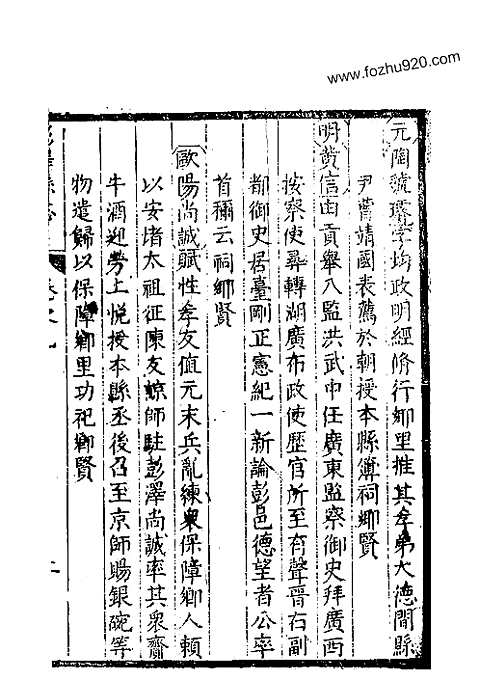 www.fozhu920.com
元陶號瓒字均政明經脩行鄉里推其孝弟大德間縣
尹曹靖國表薦於朝授本縣簿祠鄉賢
明黄信由貢舉入監洪武中任廣東監察御史拜廣西
按察使尋轉湖廣布政使歷官所至有聲晉右副
都御史居臺剛正憲紀一新論彭邑德望者公率
首稱云祠鄉賢
歐陽尚誠賦性孝友值元末兵亂練衆保障鄉人頼
以安堵太祖征陳友諒師駐彭澤尚誠率其衆齎
牛酒迎勞上悦授本縣丞後召至京師賜銀碗等
物遣歸以保障鄉里功祀鄉賢